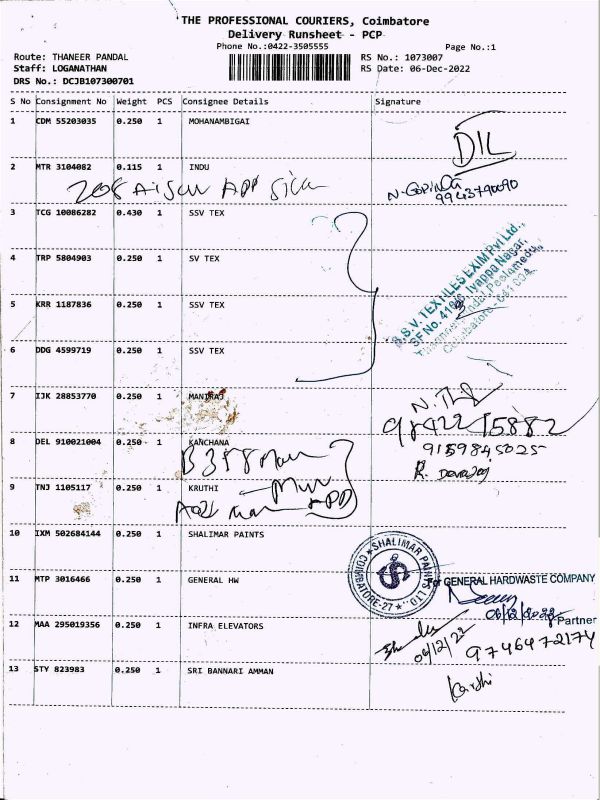 THE PROFESSIONAL COURIERS, Coimbatore
Delivery Runsheet - PCP
Phone No.:0422-3505555 Page No.:1
Route: THANEER PANDAL RS No.: 1073007
Staff: LOGANATHAN RS Date: 06-Dec-2022
DRS No.: DCJB107300701
S No Consignment No Weight PCS Consignee Details Signature
1 CDM 55203035 0.250 1 MOHANAMBIGAI
DIL
2 MTR 3104082 0.115 1 INDU
N. GOPINATH
9943790090
3 TCG 10086282 0.430 1 SSV TEX
4 TRP 5804903 0.250 1 SV TEX
S.S.V. TEXTILES EXIM Pvt Ltd.,
Coimbatore - 641 004.
5 KRR 1187836 0.250 1 SSV TEX
6 DDG 4599719 0.250 1 SSV TEX
7 IJK 28853770 0.250 1 MANIRAJ
98422 15882
8 DEL 910021004 0.250 1 KANCHANA
9159845025
R.
9 TNJ 1105117 0.250 1 KRUTHI
10 IXM 502684144 0.250 1 SHALIMAR PAINTS
SHALIMAR PAINTS LTD.
COIMBATORE-27
11 MTP 3016466 0.250 1 GENERAL HW
For GENERAL HARDWASTE COMPANY
06/12/2022
Partner
12 MAA 295019356 0.250 1 INFRA ELEVATORS
06/12/22
9746472174
13 STY 823983 0.250 1 SRI BANNARI AMMAN